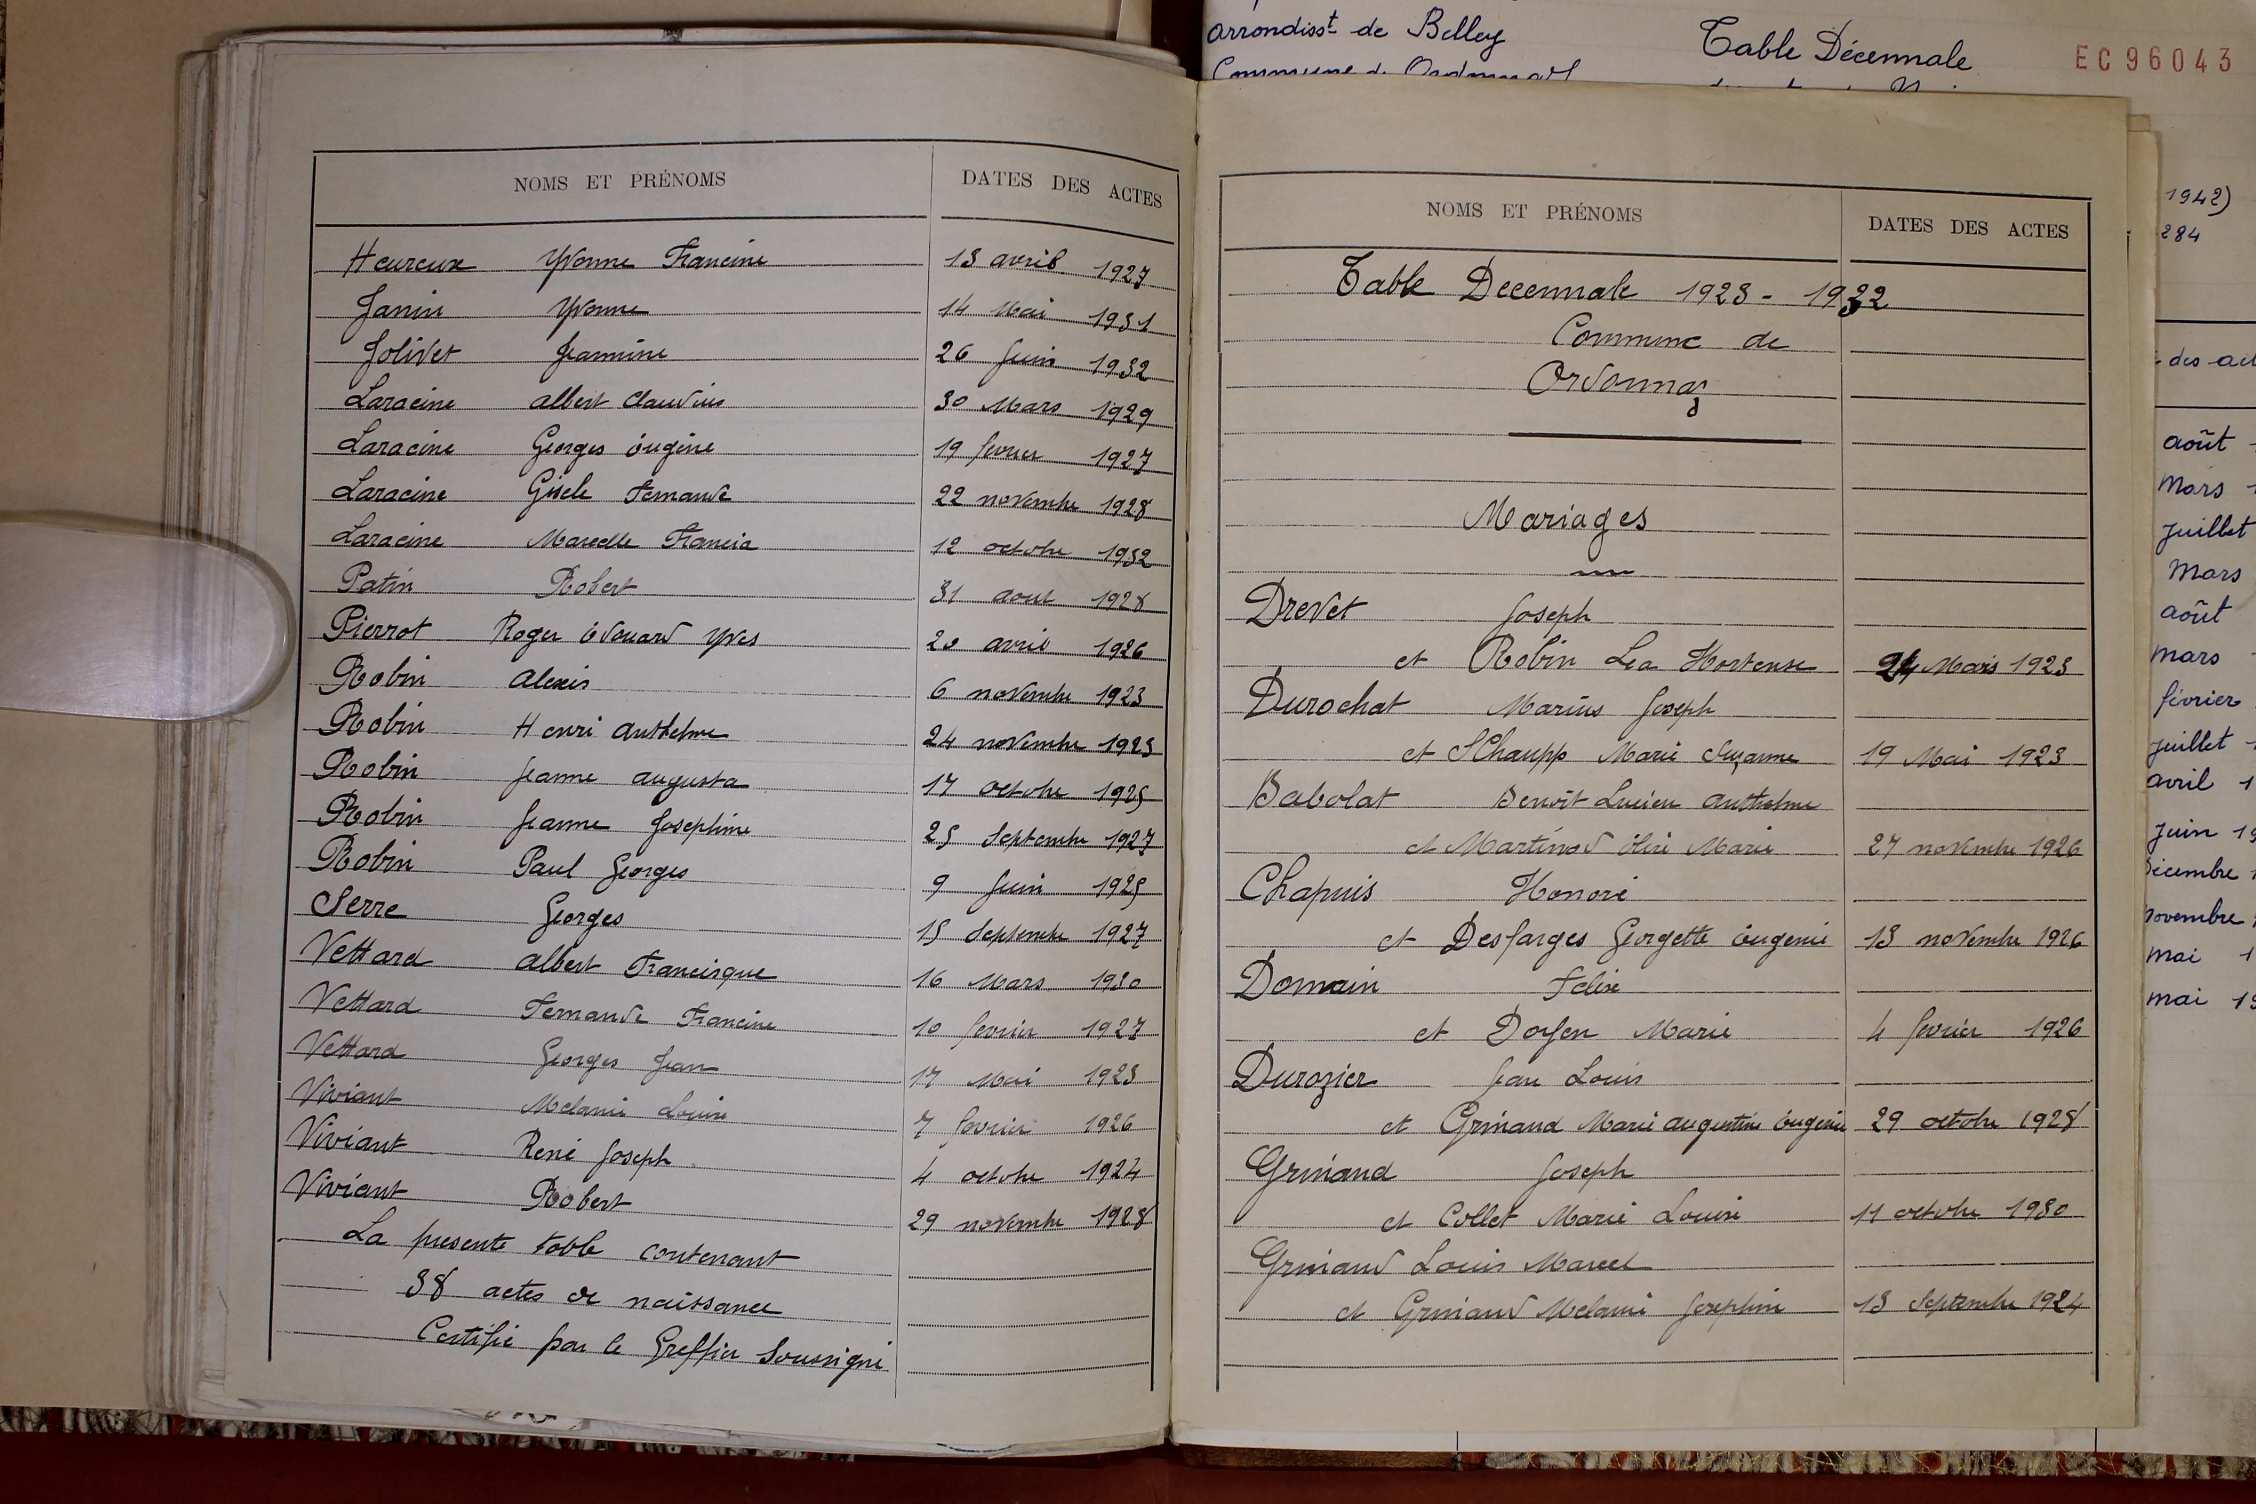 NOMS ET PRÉNOMS DATES DES ACTES
Heureux Yvonne Francine 13 avril 1927
Janin Yvonne 14 Mai 1931
Jolivet Jeannine 26 Juin 1932
Laracine albert Claudius 30 Mars 1929
Laracine Georges Eugène 19 fevrier 1927
Laracine Gisele Fernande 22 novembre 1928
Laracine Marcelle Francia 12 octobre 1932
Patin Robert 31 aout 1928
Pierrot Roger Edouard Yves 20 avril 1926
Robin alexis 6 novembre 1923
Robin Henri anthelme 24 novembre 1923
Robin Jeanne augusta 17 octobre 1925
Robin Jeanne Josephine 25 Septembre 1927
Robin Paul Georges 9 Juin 1925
Serre Georges 15 Septembre 1927
Vettard albert Francisque 16 Mars 1930
Vettard Fernande Francine 10 fevrier 1927
Vettard Georges Jean 17 Mai 1923
Viviant Melanie Louise 7 fevrier 1926
Viviant René Joseph 4 octobre 1924
Viviant Robert 29 novembre 1928
La presente table contenant
38 actes de naissance
Certifié par le Greffier Soussigné
arrondisst de Belley
Table Décennale
EC96043
NOMS ET PRÉNOMS DATES DES ACTES
Table Decennale 1923 - 1932
Commune de
Ordonnaz
Mariages
Drevet Joseph
et Robin Lea Hortense 24 Mars 1923
Durochat Marius Joseph
et SChaupp Marie Suzanne 19 Mai 1923
Babolat Benoit Lucien anthelme
et Martinod Elise Marie 27 novembre 1926
Chapuis Honoré
et Desfarges Georgette Eugenie 13 novembre 1926
Domain Felix
et Doyen Marie 4 fevrier 1926
Durozier Jean Louis
et Grinand Marie augustine Eugenie 29 octobre 1928
Grinand Joseph
et Collet Marie Louise 11 octobre 1930
Grinand Louis Marcel
et Grinand Melanie Josephine 13 Septembre 1924
1942)
284
des
août
Mars
Juillet
Mars
août
mars
février
juillet
avril 1
juin 19
décembre
novembre
mai 1
mai 19